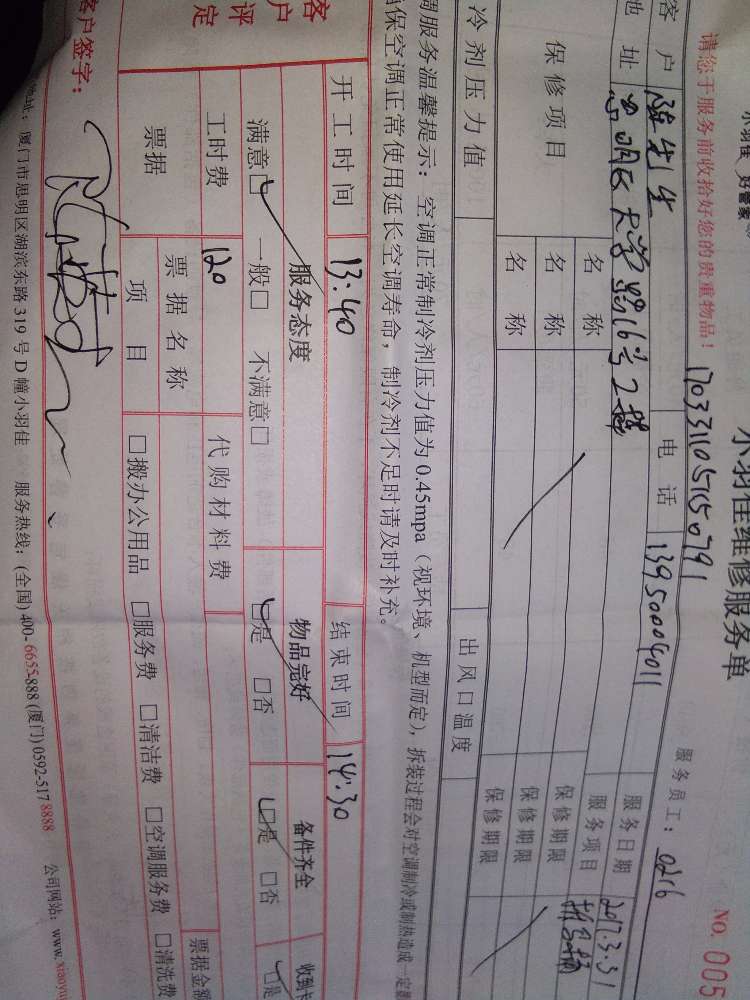 小羽佳维修服务单
NO. 005
请您于服务前收拾好您的贵重物品！
17033110515150791
服务员工：0216
客户 陈先生 电话 13950004011 服务日期 2017.3.31
地址 思明区大学路16号2楼 服务项目
保修项目 名称 保修期限
名称 保修期限
名称 保修期限
冷剂压力值 出风口温度
调服务温馨提示：空调正常制冷剂压力值为0.45mpa（视环境、机型而定），拆装过程会对空调制冷或制热造成一定
保空调正常使用延长空调寿命，制冷剂不足时请及时补充。
开工时间 13:40 结束时间 14:30
客户评定 服务态度 物品完好 备件齐全 收到卡
满意□ 一般□ 不满意□ □是 □否 □是 □否 □是
工时费 120 代购材料费
票据 票据名称 票据金额
项目 □搬办公用品 □服务费 □清洁费 □空调服务费 □清洗费
客户签字：
地址：厦门市思明区湖滨东路319号D幢小羽佳 服务热线：(全国) 400-6655-888 (厦门) 0592-517 8888 公司网站：www.xiaoyu